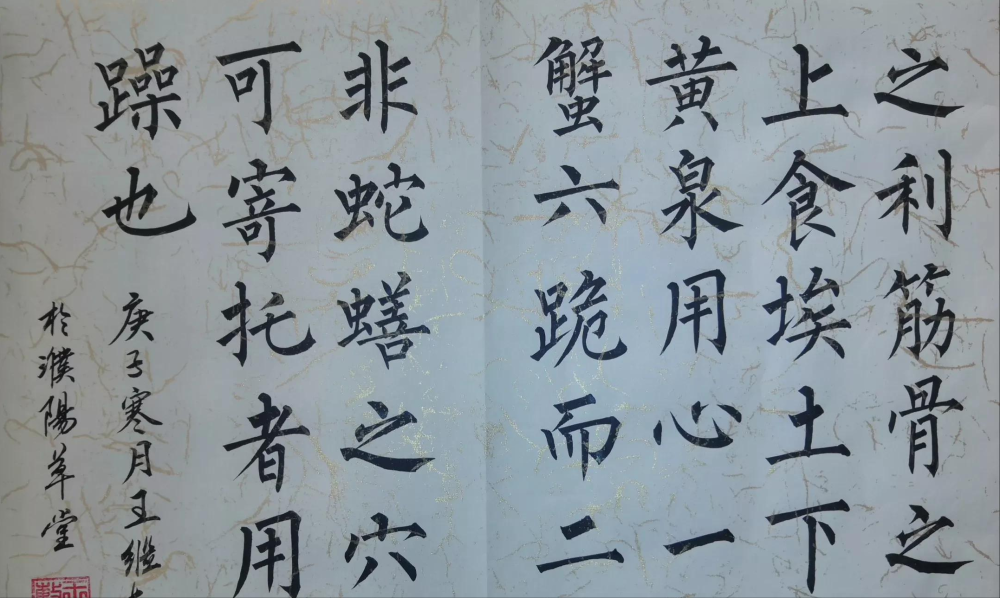 之利筋骨之
上食埃土下
黄泉用心一
蟹六跪而二
非蛇蟮之穴
可寄托者用
躁也
庚子寒月王继
於濮陽草堂